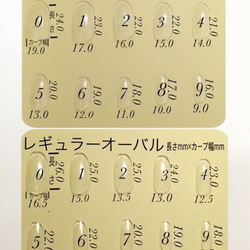 0 長さ 24.0 1 23.0 2 22.0 3 22.0 4 21.0
カーブ幅
19.0 17.0 16.0 15.0 14.0
5 20.0 6 19.0 7 18.0 8 17.0 9 16.0
13.0 12.0 11.0 10.0 9.0
レギュラーオーバル 長さmm×カーブ幅mm
0 長さ 26.0 1 25.0 2 3 4
カーブ幅
16.5 15.0 13.5 13.0 12.5
5 22.0 6 7 8 9 18.0